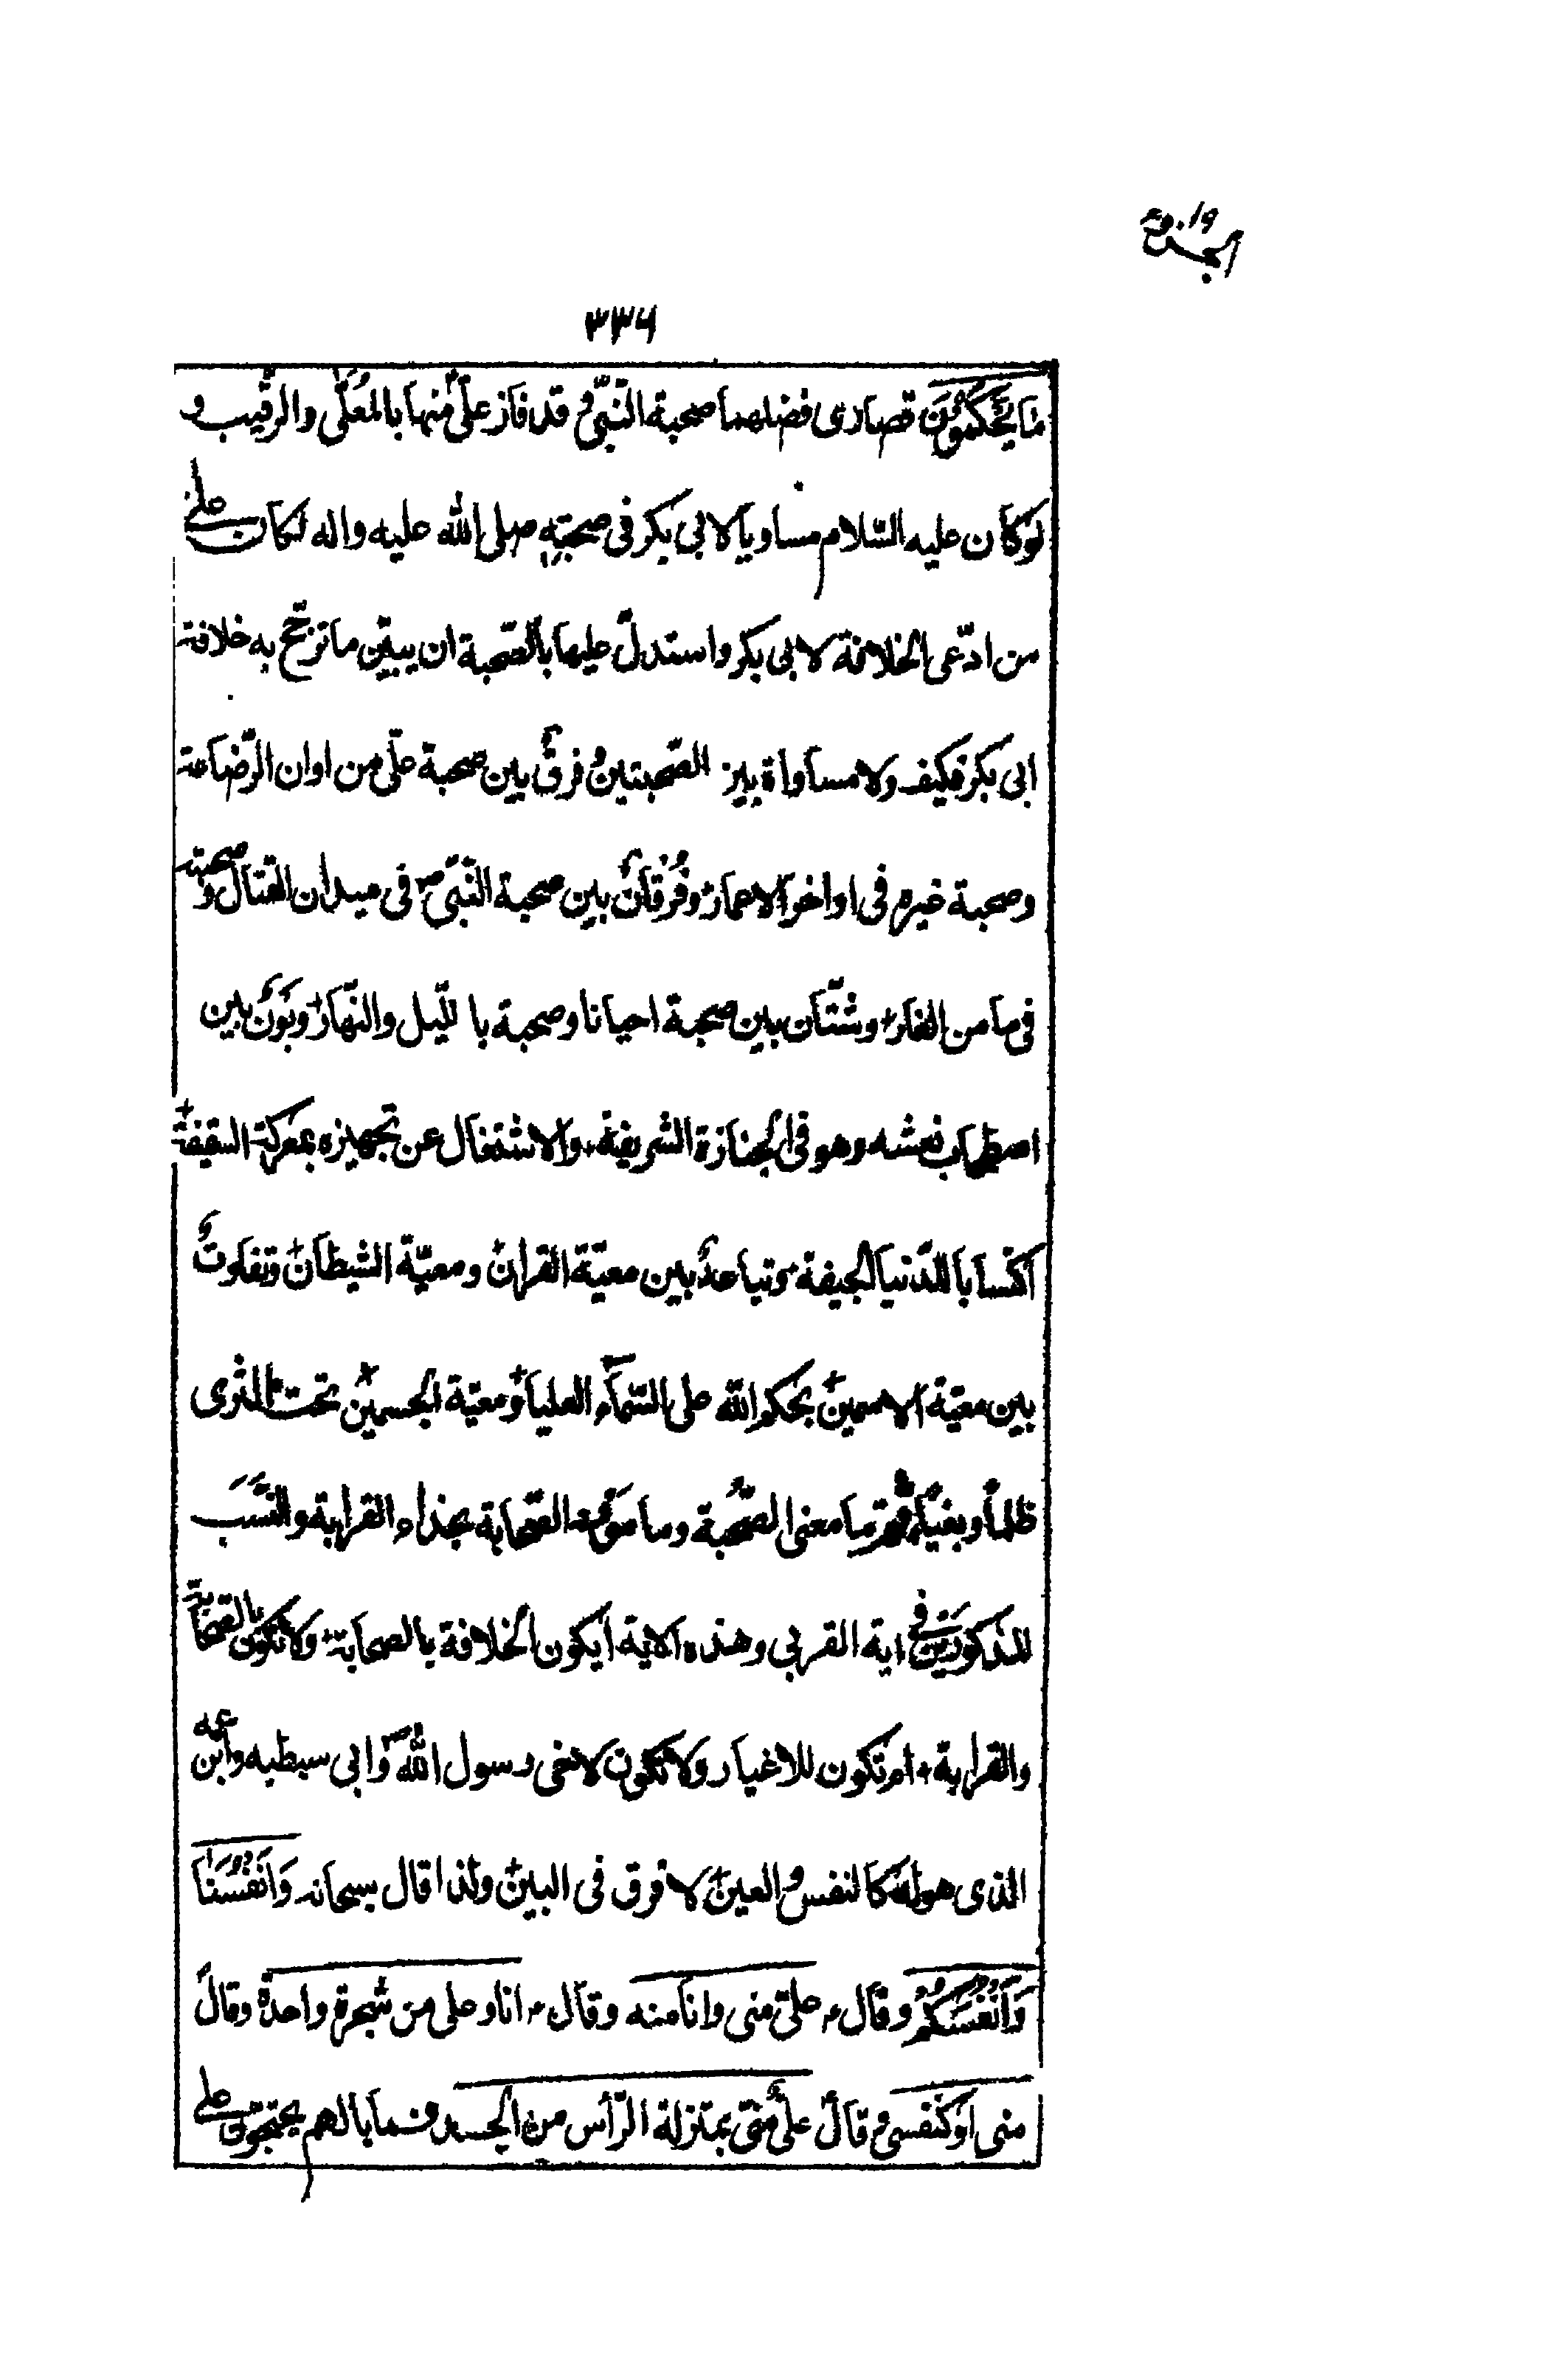 ٣٣٦
مَا يَحْكُمُوْنَ قصارى فضلهما صحبة النّبىّ و قد فاز علىٌّ منها بالمُعَلّٰى والرّقيب و
لو كان عليه السّلام مساويا لابى بكر فى صحبته صلى الله عليه واله لكان على
من ادّعى الخلافة لابى بكر واستدلّ عليها بالصّحبة ان يبيّن ما ترجّح به خلافة
ابى بكر فكيف ولا مساواة بين الصّحبتين و فرقٌ بين صحبة علّى من اوان الرّضاعة
وصحبة غيره فى اواخر الاعمار وفُرْقانٌ بين صحبة النّبىّ ص فى ميدان القتال و صحبته
فى مامن الغار وشتّان بين صحبة احيانا وصحبة بالليل والنّهار وبَوْنٌ بين
اصطحاب نعشه وهو فى الجنازة الشريفة والاشتغال عن تجهيزه بمعركة السقيفة
اكتسابا للدّنيا الجيفة وتباعدٌ بين معيّة القران ومعيّة الشيطان وتفاوتٌ
بين معيّة الاسمين بحكم الله على السّماء العليا و معيّة الجسمين تحت الثرى
ظلماً وبغياً ثم ما معنى الصّحْبة وما موقع الصّحابة بحذاء القرابة والنَّسَب
المذكورَيْن فى اية القربى وهذه الاية ايكون الخلافة بالصحابة ولا تكون بالصّحابة
والقرابة ام تكون للاغيار ولا تكون لاخى رسول الله ص وابى سبطيه وابن عمه
الذى هو له كالنفس والعين لا فرق فى البين ولذا قال سبحانه وَاَنْفُسَنَا
وَاَنْفُسَكُمْ وقال علىّ منى وانا منه وقال انا وعلى من شجرة واحدة وقال
منى او كنفسى و قال علىٌّ منّى بمنزلة الرّأس من الجسد فما بالهم يحتجّون على